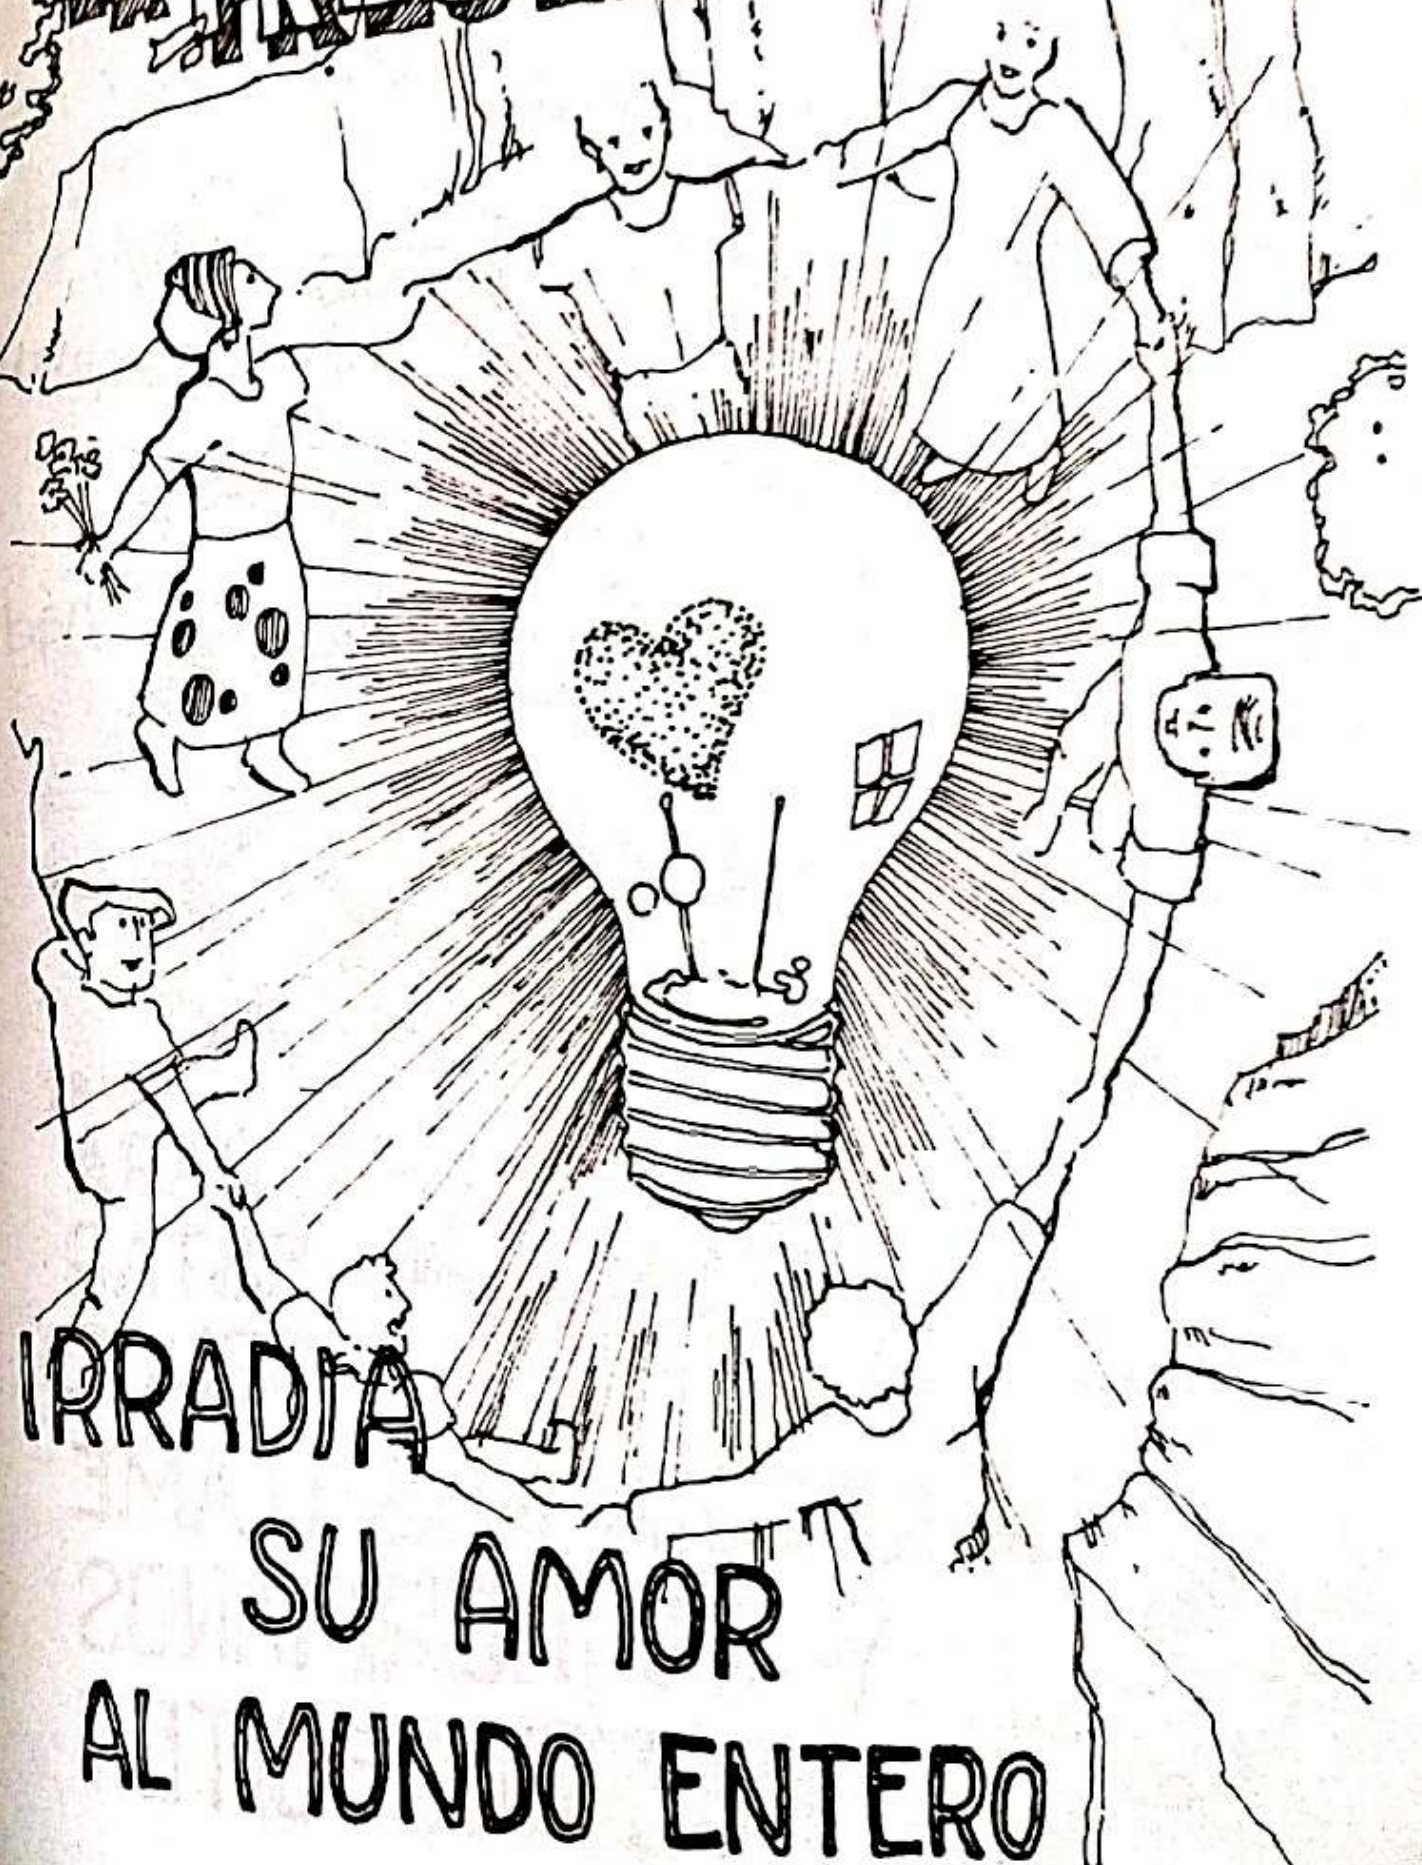 IRRADIA
SU AMOR
AL MUNDO ENTERO